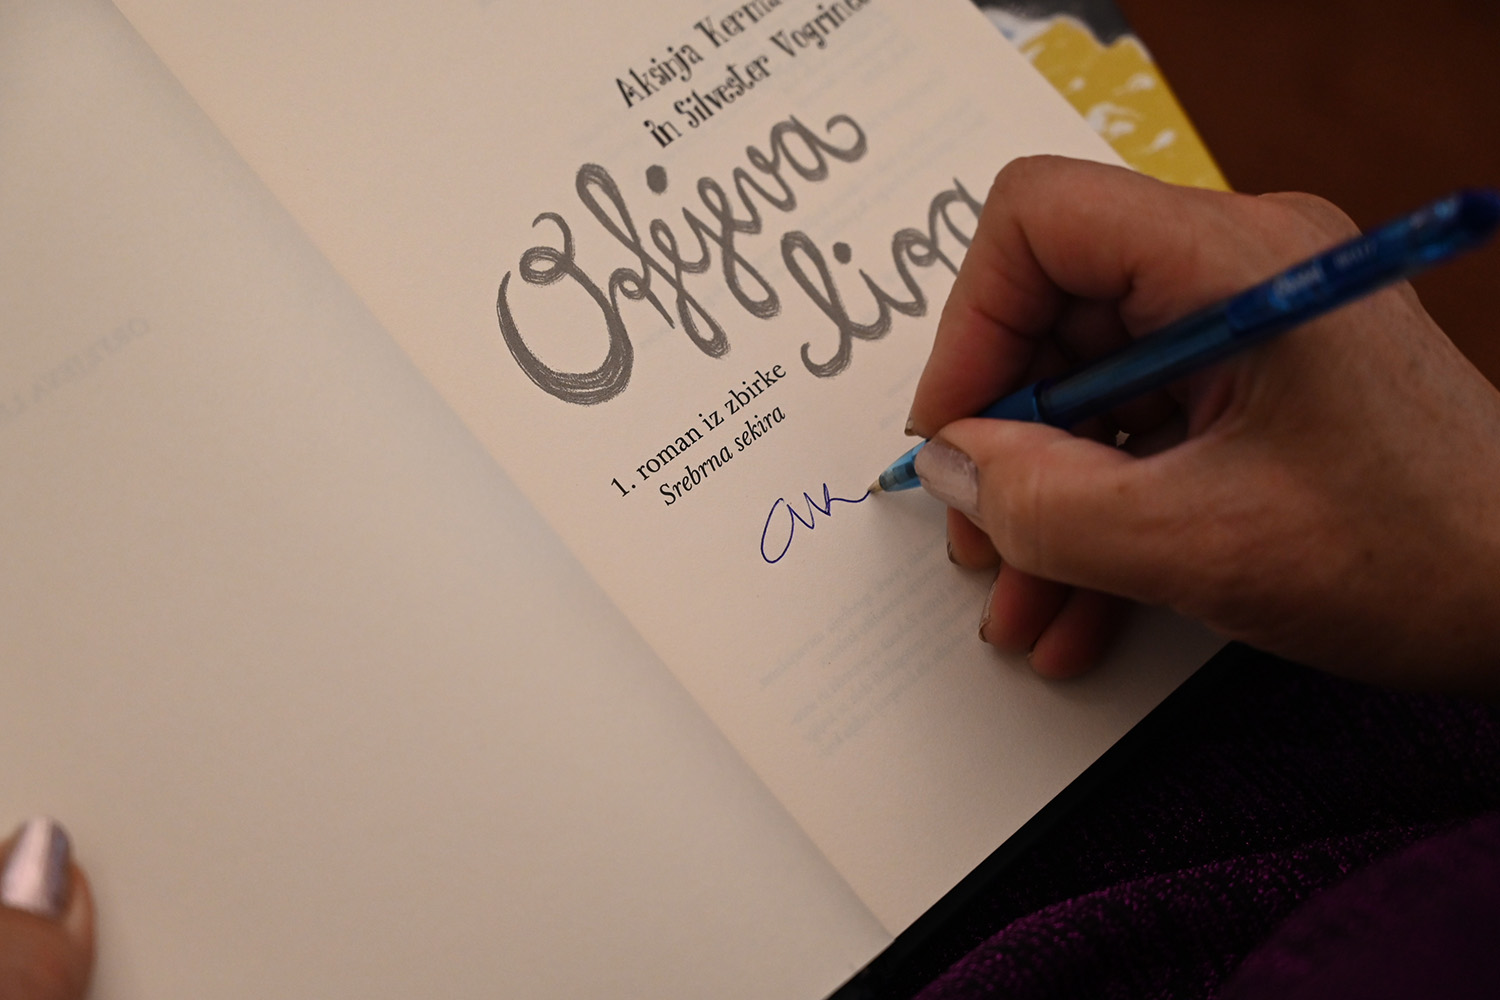 Aksinja Kerma
in Silvester Vogrinec
Orfejeva
lira
1. roman iz zbirke
Srebrna sekira